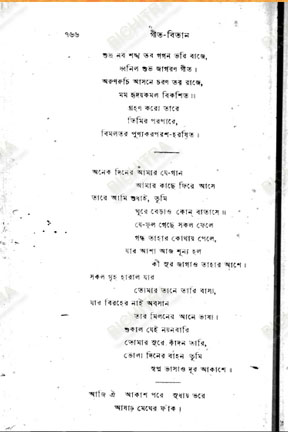 ৭৬৬ গীত-বিতান
শুভ নব শঙ্খ তব গগন ভরি বাজে,
ধ্বনিল শুভ জাগরণ গীত।
অরুণরুচি আসনে চরণ তব রাজে,
মম হৃদয়কমল বিকশিত॥
গ্রহণ করো তারে
তিমির পরপারে,
বিমলতর পুণ্যকরপরশ-হরষিত।
অনেক দিনের আমার যে-গান
আমার কাছে ফিরে আসে
তারে আমি শুধাই, তুমি
ঘুরে বেড়াও কোন্ বাতাসে॥
যে-ফুল গেছে সকল ফেলে
গন্ধ তাহার কোথায় পেলে,
যার আশা আজ শূন্য হল
কী সুর জাগাও তাহার আশে।
সকল গৃহ হারাল যার
তোমার তানে তারি বাসা,
যার বিরহের নাই অবসান
তার মিলনের আনে ভাষা।
শুকাল যেই নয়নবারি
তোমার সুরে কাঁদন তারি,
ভোলা দিনের বাহন তুমি
স্বপ্ন ভাসাও দূর আকাশে।
আজি ঐ আকাশ পরে সুধায় ভরে
আষাঢ় মেঘের ফাঁক।